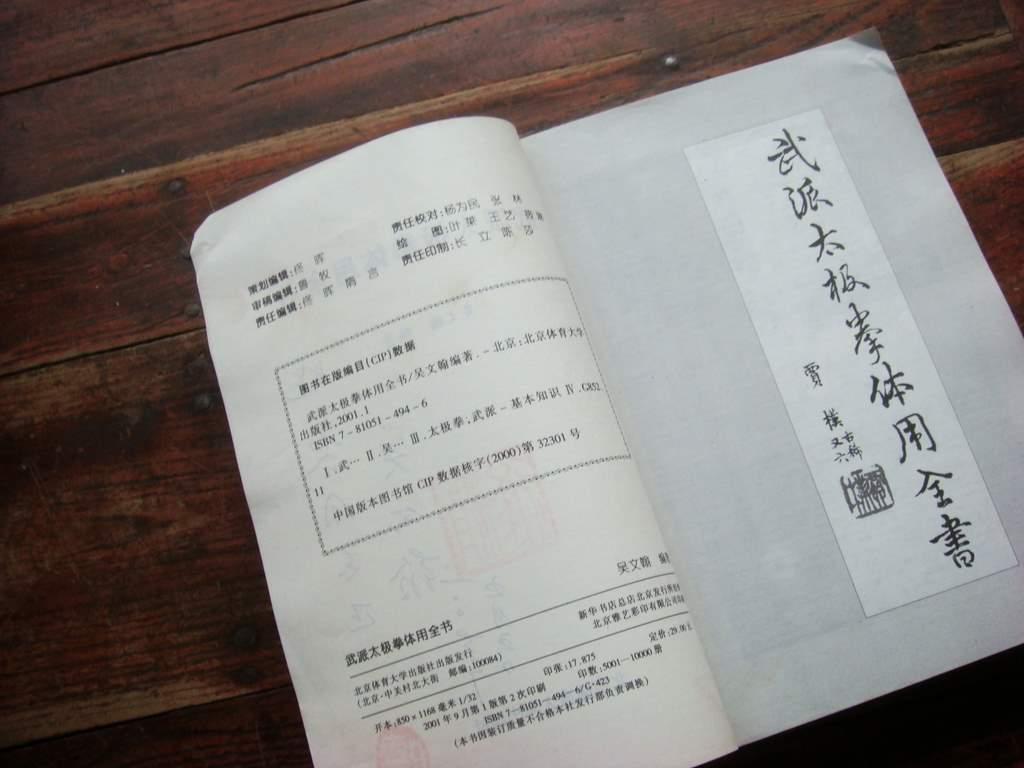 策划编辑:佟晖
审稿编辑:鲁牧
责任编辑:佟晖 隋言
责任校对:杨为民 张林
绘 图:叶莱 王艺
责任印制:长立 陈莎
图书在版编目(CIP)数据
武派太极拳体用全书/吴文翰编著.-北京:北京体育大学
出版社,2001.1
ISBN 7-81051-494-6
Ⅰ.武… Ⅱ.吴… Ⅲ.太极拳,武派-基本知识 Ⅳ.G852
11
中国版本图书馆 CIP 数据核字(2000)第 32301 号
武派太极拳体用全书
吴文翰 编
北京体育大学出版社出版发行
(北京·中关村北大街 邮编:100084)
新华书店总店北京发行所
北京雅艺彩印有限公司
开本:850×1168毫米1/32
印张:17.875
定价:29.00
2001年9月第1版第2次印刷
印数:5001—10000册
ISBN 7—81051—494—6/G·423
(本书因装订质量不合格本社发行部负责调换)
武派太极拳体用全書
賈樸
又右
六